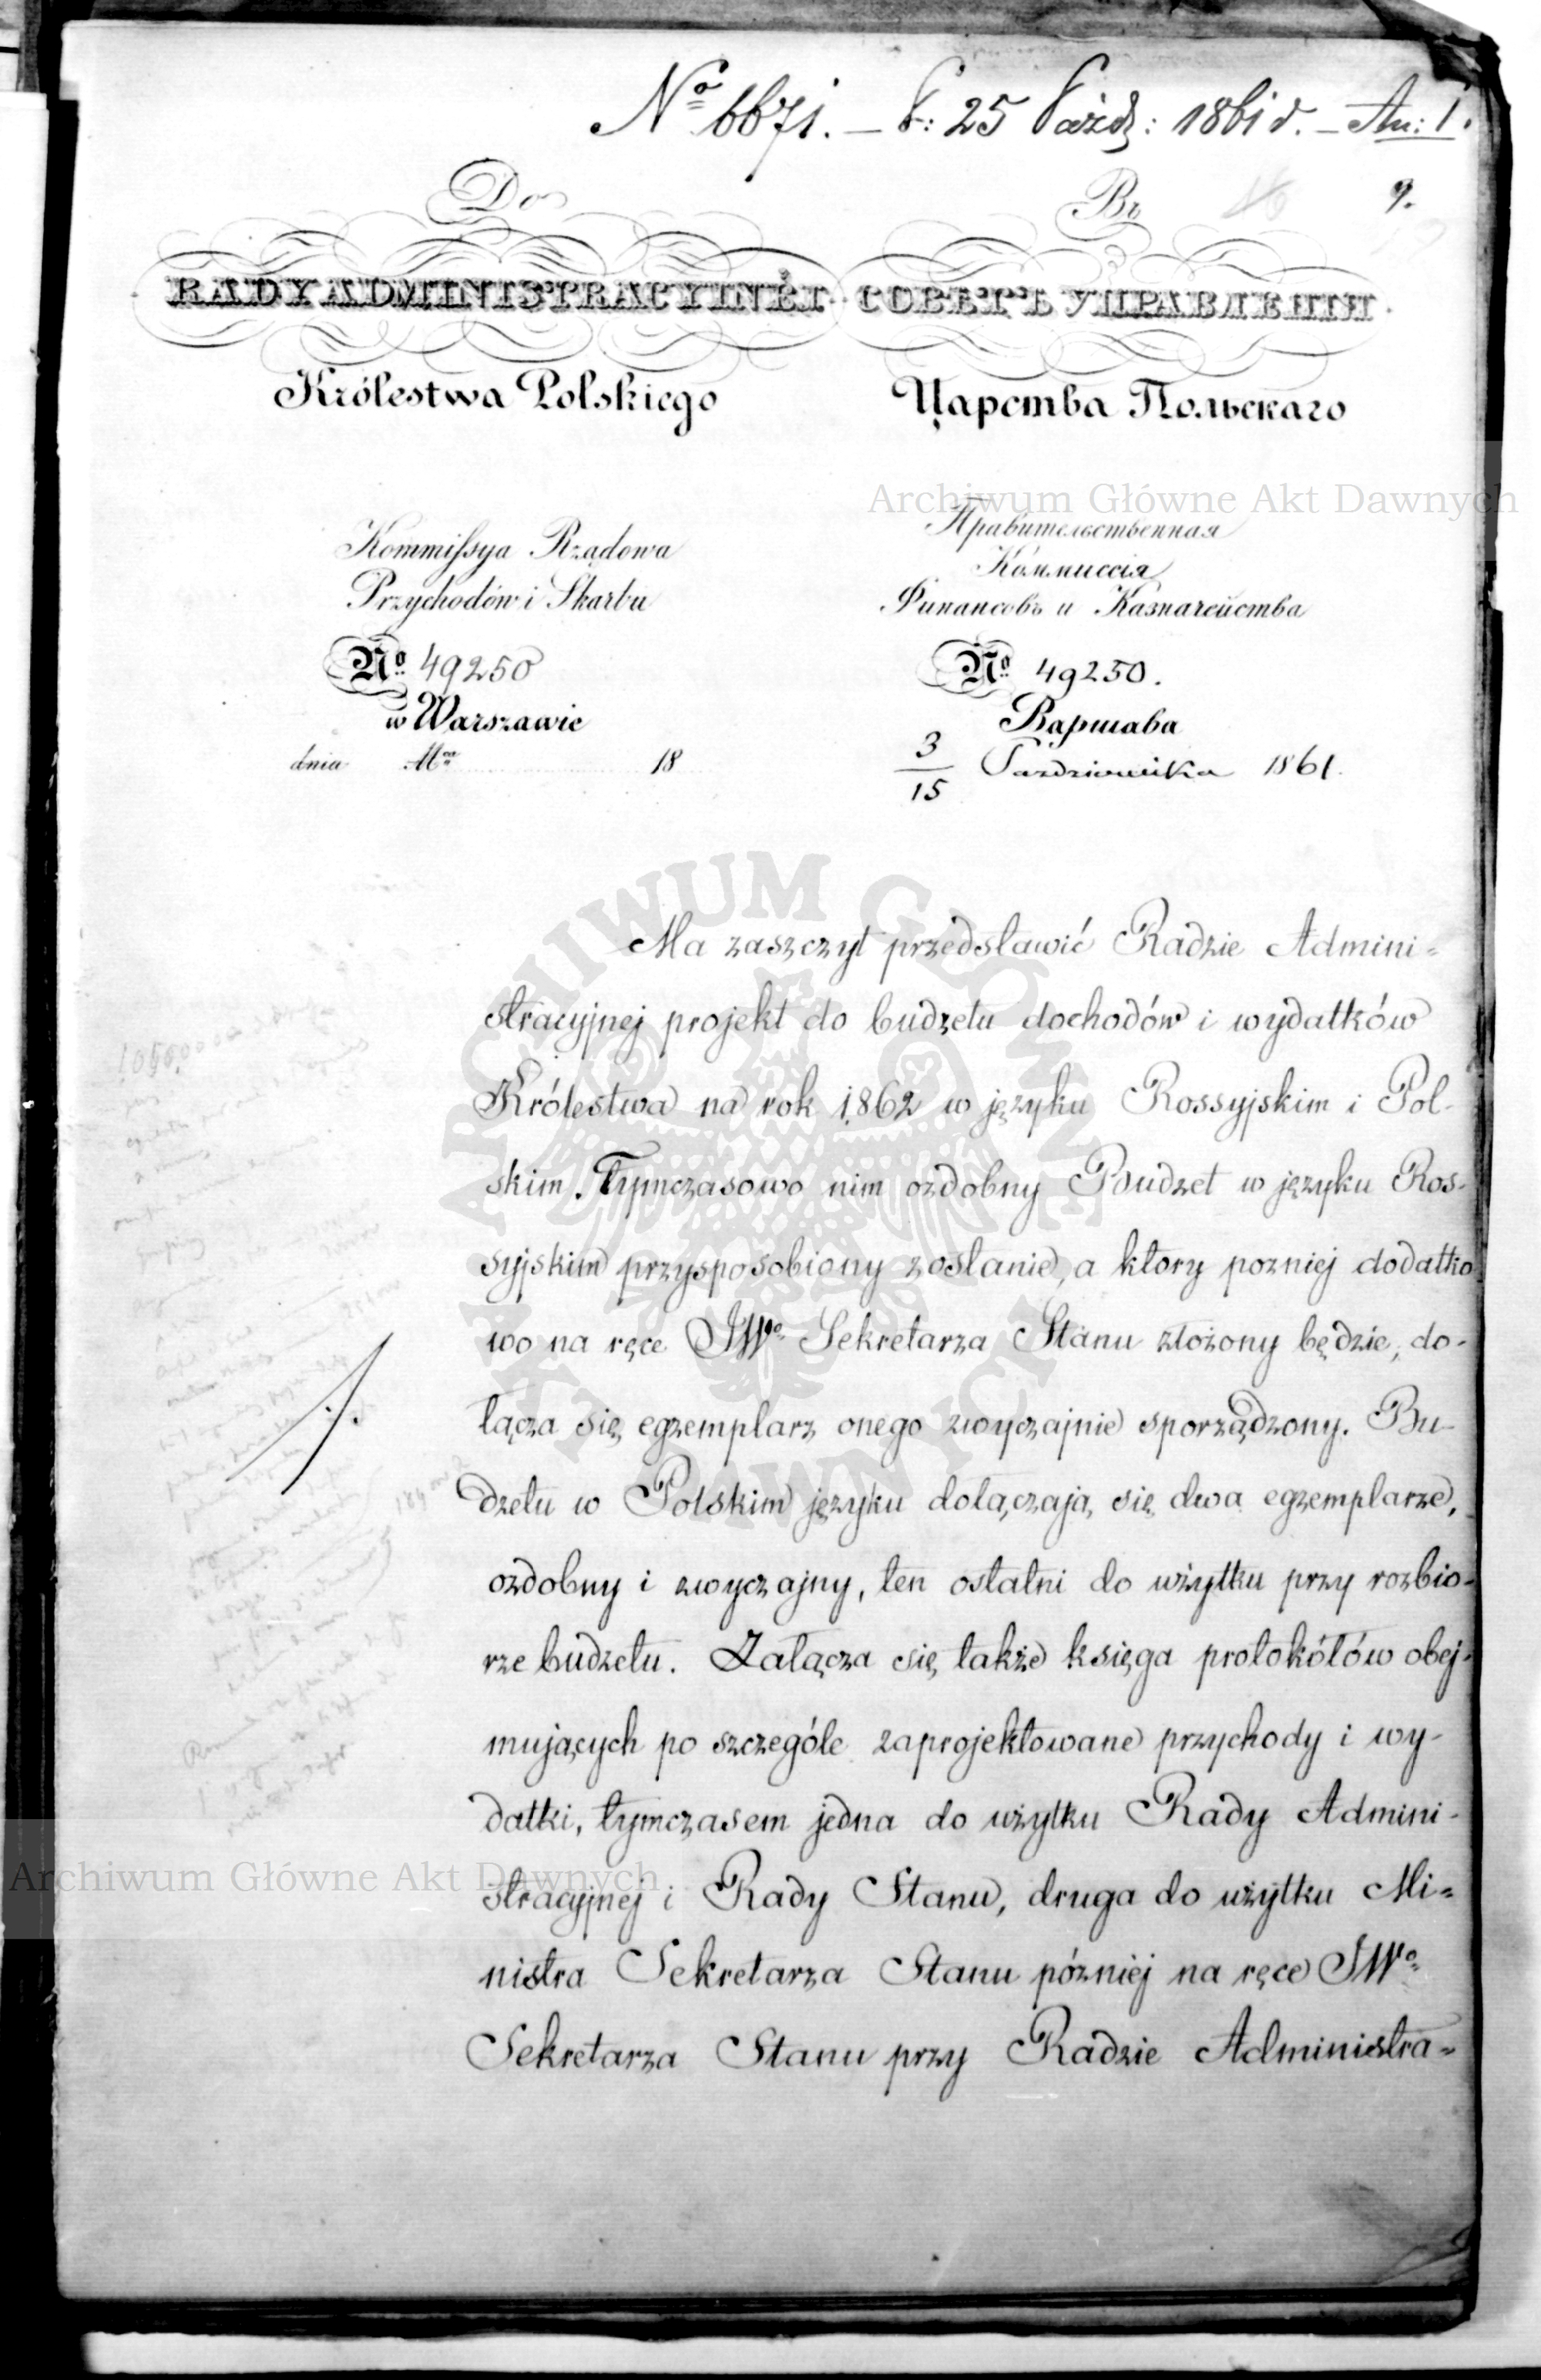 Nº 6671. – P: 25 Paźdz: 1861 r. – An: 1.
9.
Do
RADY ADMINISTRACYINÉY
Królestwa Polskiego
Въ
СОВѢТЪ УПРАВЛЕНІЯ
Царства Польскаго
Kommissya Rządowa
Przychodów i Skarbu
Nº 49250
w Warszawie
dnia Mca 18
Правительственная
Коммиссія
Финансовъ и Казначейства
Nº 49250.
Варшава
3/15 Października 1861.
Ma zaszczyt przedstawić Radzie Admini=
stracyjnej projekt do budżetu dochodów i wydatków
Królestwa na rok 1862 w języku Rossyjskim i Pol-
skim. Tymczasowo nim ozdobny Budzet w języku Ros-
syjskim przysposobiony zostanie, a ktory pozniej dodatko
wo na ręce JWº Sekretarza Stanu złożony będzie, do-
łącza się egzemplarz onego zwyczajnie sporządzony. Bu-
dzetu w Polskim języku dołączają się dwa egzemplarze,
ozdobny i zwyczajny, ten ostatni do użytku przy rozbio-
rze budzetu. Załącza się także księga protokółów obej-
mujących po szczególe zaprojektowane przychody i wy-
datki, tymczasem jedna do użytku Rady Admini-
stracyjnej i Rady Stanu, druga do użytku Mi=
nistra Sekretarza Stanu później na ręce JWº
Sekretarza Stanu przy Radzie Administra=
Archiwum Główne Akt Dawnych
Archiwum Główne Akt Dawnych
ARCHIWUM GŁÓWNE AKT DAWNYCH